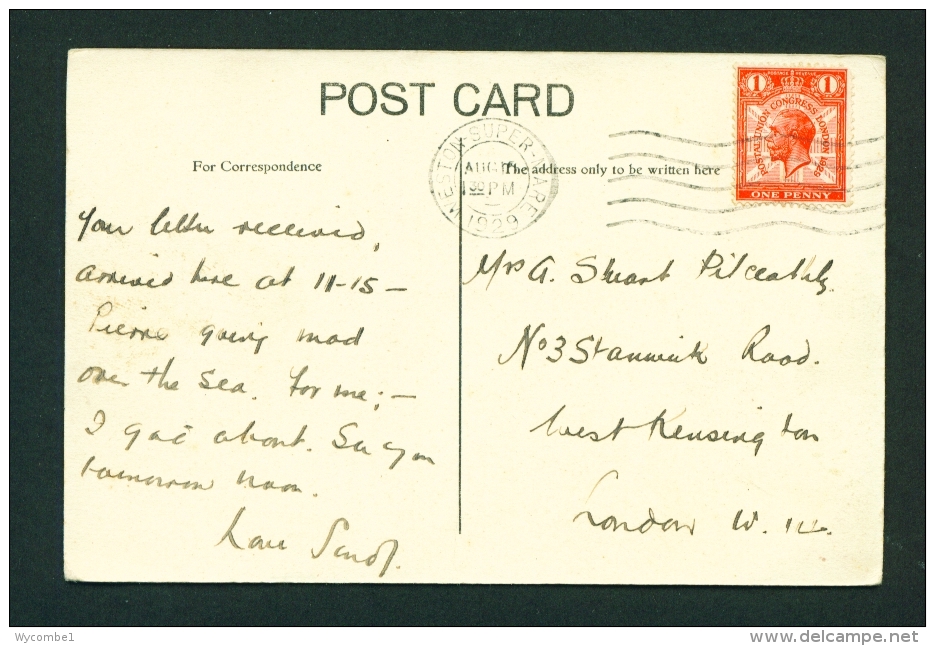 POST CARD
For Correspondence
The address only to be written here
WESTON-SUPER-MARE
AUG
1 30 PM
1929
1 POSTAGE REVENUE 1
POSTAL UNION CONGRESS LONDON 1929
ONE PENNY
Your letter received,
arrived here at 11-15 -
Pierre going mad
over the Sea. for me; -
I got about. See you
tomorrow noon.
Love
Mrs A. Stuart Pitceathly.
No 3 Stanwick Road.
West Kensington
London W. 14.
Wycombe1
www.delcampe.net